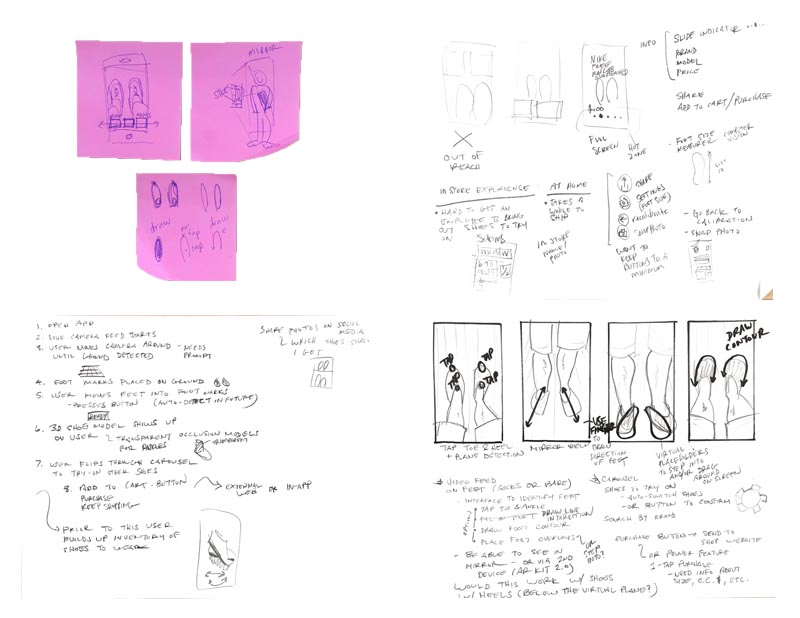 MIRROR
draw
or
tap
tap
draw
INFO
SLIDE INDICATOR
BRAND
MODEL
PRICE
NIKE
FREE
$100
SHARE
ADD TO CART/PURCHASE
OUT OF
REACH
FULL
SCREEN
HOT
ZONE
- FOOT SIZE
MEASURER COMPUTER
VISION
SIZE
IN STORE EXPERIENCE
• HARD TO GET AN
EMPLOYEE TO BRING
OUT SHOES TO TRY
ON
AT HOME
• TAKES A
WHILE TO
SHIP
SHARE
SETTINGS
(FOOT SIZE)
WANT TO
KEEP
BUTTONS TO A
MINIMUM
- GO BACK TO
CALIBRATION
- SNAP PHOTO
1. OPEN APP
2. LIVE CAMERA FEED STARTS
3. USER MOVES CAMERA AROUND - NEEDS
UNTIL GROUND DETECTED PROMPT
4. FOOT MARKS PLACED ON GROUND
5. USER MOVES FEET INTO FOOT MARKS
- PRESSES BUTTON (AUTO-DETECT IN FUTURE)
6. 3D SHOE MODEL SHOWS UP
ON USER & TRANSPARENT OCCLUSION MODELS
FOR ANKLES
7. USER FLIPS THROUGH CAROUSEL
TO TRY-ON OTHER SHOES
8. ADD TO CART - BUTTON
PURCHASE
KEEP SHOPPING
EXTERNAL
WEB OR IN-APP
PRIOR TO THIS USER
BUILDS UP INVENTORY OF
SHOES TO WEAR
SHARE PHOTOS ON SOCIAL
MEDIA
WHICH SHOES SHOULD
I GET
TAP
TAP
TAP
TAP
DRAW
CONTOUR
TAP TOE & HEEL
+ PLANE DETECTION
MIRROR VIEW
- USE
FINGER
TO
DRAW
DIRECTION
OF FEET
VIRTUAL
PLACEHOLDERS
TO STEP INTO
AND/OR DRAG
AROUND
ON SCREEN
VIDEO FEED
ON FEET (SOCKS OR BARE)
- INTERFACE TO IDENTIFY FEET
OPTIONS
TAP TOE & ANKLE
DRAW LINE
IN DIRECTION
DRAW FOOT CONTOUR
PLACE FOOT OVERLAYS
OR
STEP
INTO?
- BE ABLE TO SEE IN
MIRROR - OR VIA 2ND
DEVICE (AR KIT 2.0)
WOULD THIS WORK W/ SHOES
W/ HEELS (BELOW THE VIRTUAL PLANE?)
CAROUSEL
SHOES TO TRY ON
- AUTO-SWITCH SHOES
- OR BUTTON TO CONFIRM
SEARCH BY BRAND
PURCHASE BUTTON → SEND TO
SHOP WEBSITE
OR POWER FEATURE
1-TAP PURCHASE
- NEED INFO ABOUT
SIZE, C.C. #, ETC.